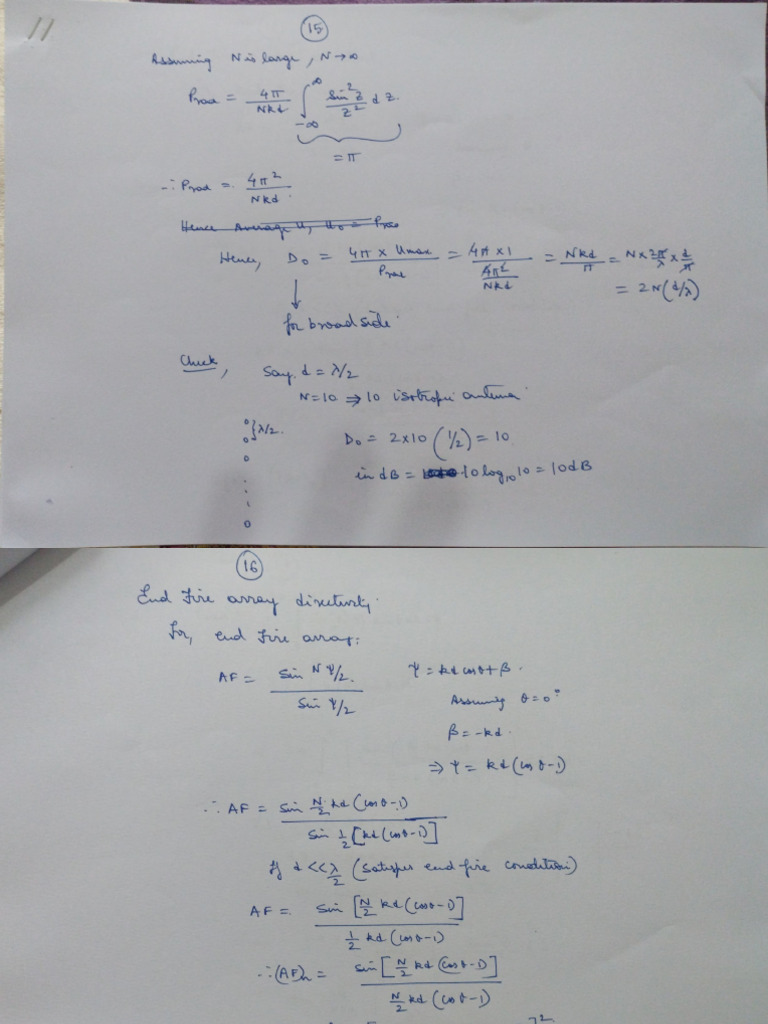 11
15
Assuming N is large, N → ∞
Prad = 4π/Nkd ∫_{-∞}^{∞} sin²z/z² dz.
= π
∴ Prad = 4π²/Nkd.
Hence Average U, U₀ = Prad
Hence, D₀ = 4π × Umax/Prad = 4π × 1/(4π²/Nkd) = Nkd/π = N × 2π/λ × d/π
= 2N(d/λ)
↓
for broad side.
Check, Say. d = λ/2
N = 10 ⇒ 10 isotropic antenna
}λ/2. D₀ = 2×10 (1/2) = 10
in dB = 10 log₁₀ 10 = 10 dB
16
End Fire array directivity.
For, end Fire array:
AF = Sin Nψ/2. / Sin ψ/2 ψ = kd cosθ + β.
Assuming θ = 0°
β = -kd.
⇒ ψ = kd (cosθ - 1)
∴ AF = Sin N/2 kd (cosθ - 1) / Sin 1/2 [kd (cosθ - 1)]
If d << λ/2 (Satisfies end fire condition)
AF = Sin [N/2 kd (cosθ - 1)] / 1/2 kd (cosθ - 1)
∴ (AF)n = Sin [N/2 kd (cosθ - 1)] / N/2 kd (cosθ - 1)